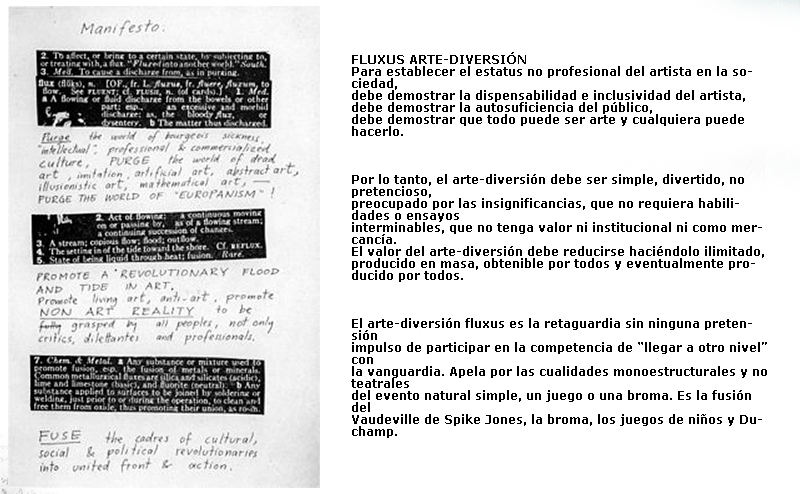 Manifesto:
2. To affect, or bring to a certain state, by subjecting to,
or treating with, a flux. "Fluxed into another world." South.
3. Med. To cause a discharge from, as in purging.
flux (flŭks), n. [OF., fr. L. fluxus, fr. fluere, fluxum, to
flow. See FLUENT; cf. FLUSH, n. (of cards).] 1. Med.
a A flowing or fluid discharge from the bowels or other
part; esp., an excessive and morbid
discharge; as, the bloody flux, or
dysentery. b The matter thus discharged.
Purge the world of bourgeois sickness,
"intellectual", professional & commercialized
culture, PURGE the world of dead
art, imitation, artificial art, abstract art,
illusionistic art, mathematical art, —
PURGE THE WORLD OF "EUROPANISM"!
2. Act of flowing: a continuous moving
on or passing by, as of a flowing stream;
a continuing succession of changes.
3. A stream; copious flow; flood; outflow.
4. The setting in of the tide toward the shore. Cf. REFLUX.
5. State of being liquid through heat; fusion. Rare.
PROMOTE A REVOLUTIONARY FLOOD
AND TIDE IN ART.
Promote living art, anti-art, promote
NON ART REALITY to be
fully grasped by all peoples, not only
critics, dilettantes and professionals.
7. Chem. & Metal. a Any substance or mixture used to
promote fusion, esp. the fusion of metals or minerals.
Common metallurgical fluxes are silica and silicates (acidic),
lime and limestone (basic), and fluorite (neutral). b Any
substance applied to surfaces to be joined by soldering or
welding, just prior to or during the operation, to clean and
free them from oxide, thus promoting their union, as rosin.
FUSE the cadres of cultural,
social & political revolutionaries
into united front & action.
FLUXUS ARTE-DIVERSIÓN
Para establecer el estatus no profesional del artista en la so-
ciedad,
debe demostrar la dispensabilidad e inclusividad del artista,
debe demostrar la autosuficiencia del público,
debe demostrar que todo puede ser arte y cualquiera puede
hacerlo.
Por lo tanto, el arte-diversión debe ser simple, divertido, no
pretencioso,
preocupado por las insignificancias, que no requiera habili-
dades o ensayos
interminables, que no tenga valor ni institucional ni como mer-
cancía.
El valor del arte-diversión debe reducirse haciéndolo ilimitado,
producido en masa, obtenible por todos y eventualmente pro-
ducido por todos.
El arte-diversión fluxus es la retaguardia sin ninguna preten-
sión
impulso de participar en la competencia de “llegar a otro nivel”
con
la vanguardia. Apela por las cualidades monoestructurales y no
teatrales
del evento natural simple, un juego o una broma. Es la fusión
del
Vaudeville de Spike Jones, la broma, los juegos de niños y Du-
champ.